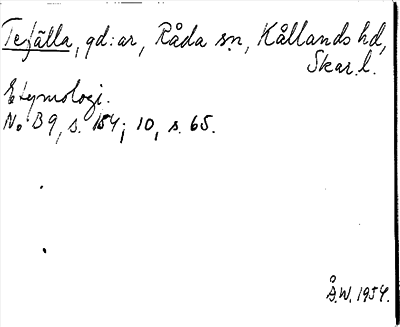 Tefälla, gd:ar, Råda sn, Kållands hd,
Skar. l.
Etymologi.
No B 9, s. 154; 10, s. 65.
Å.W. 1954.